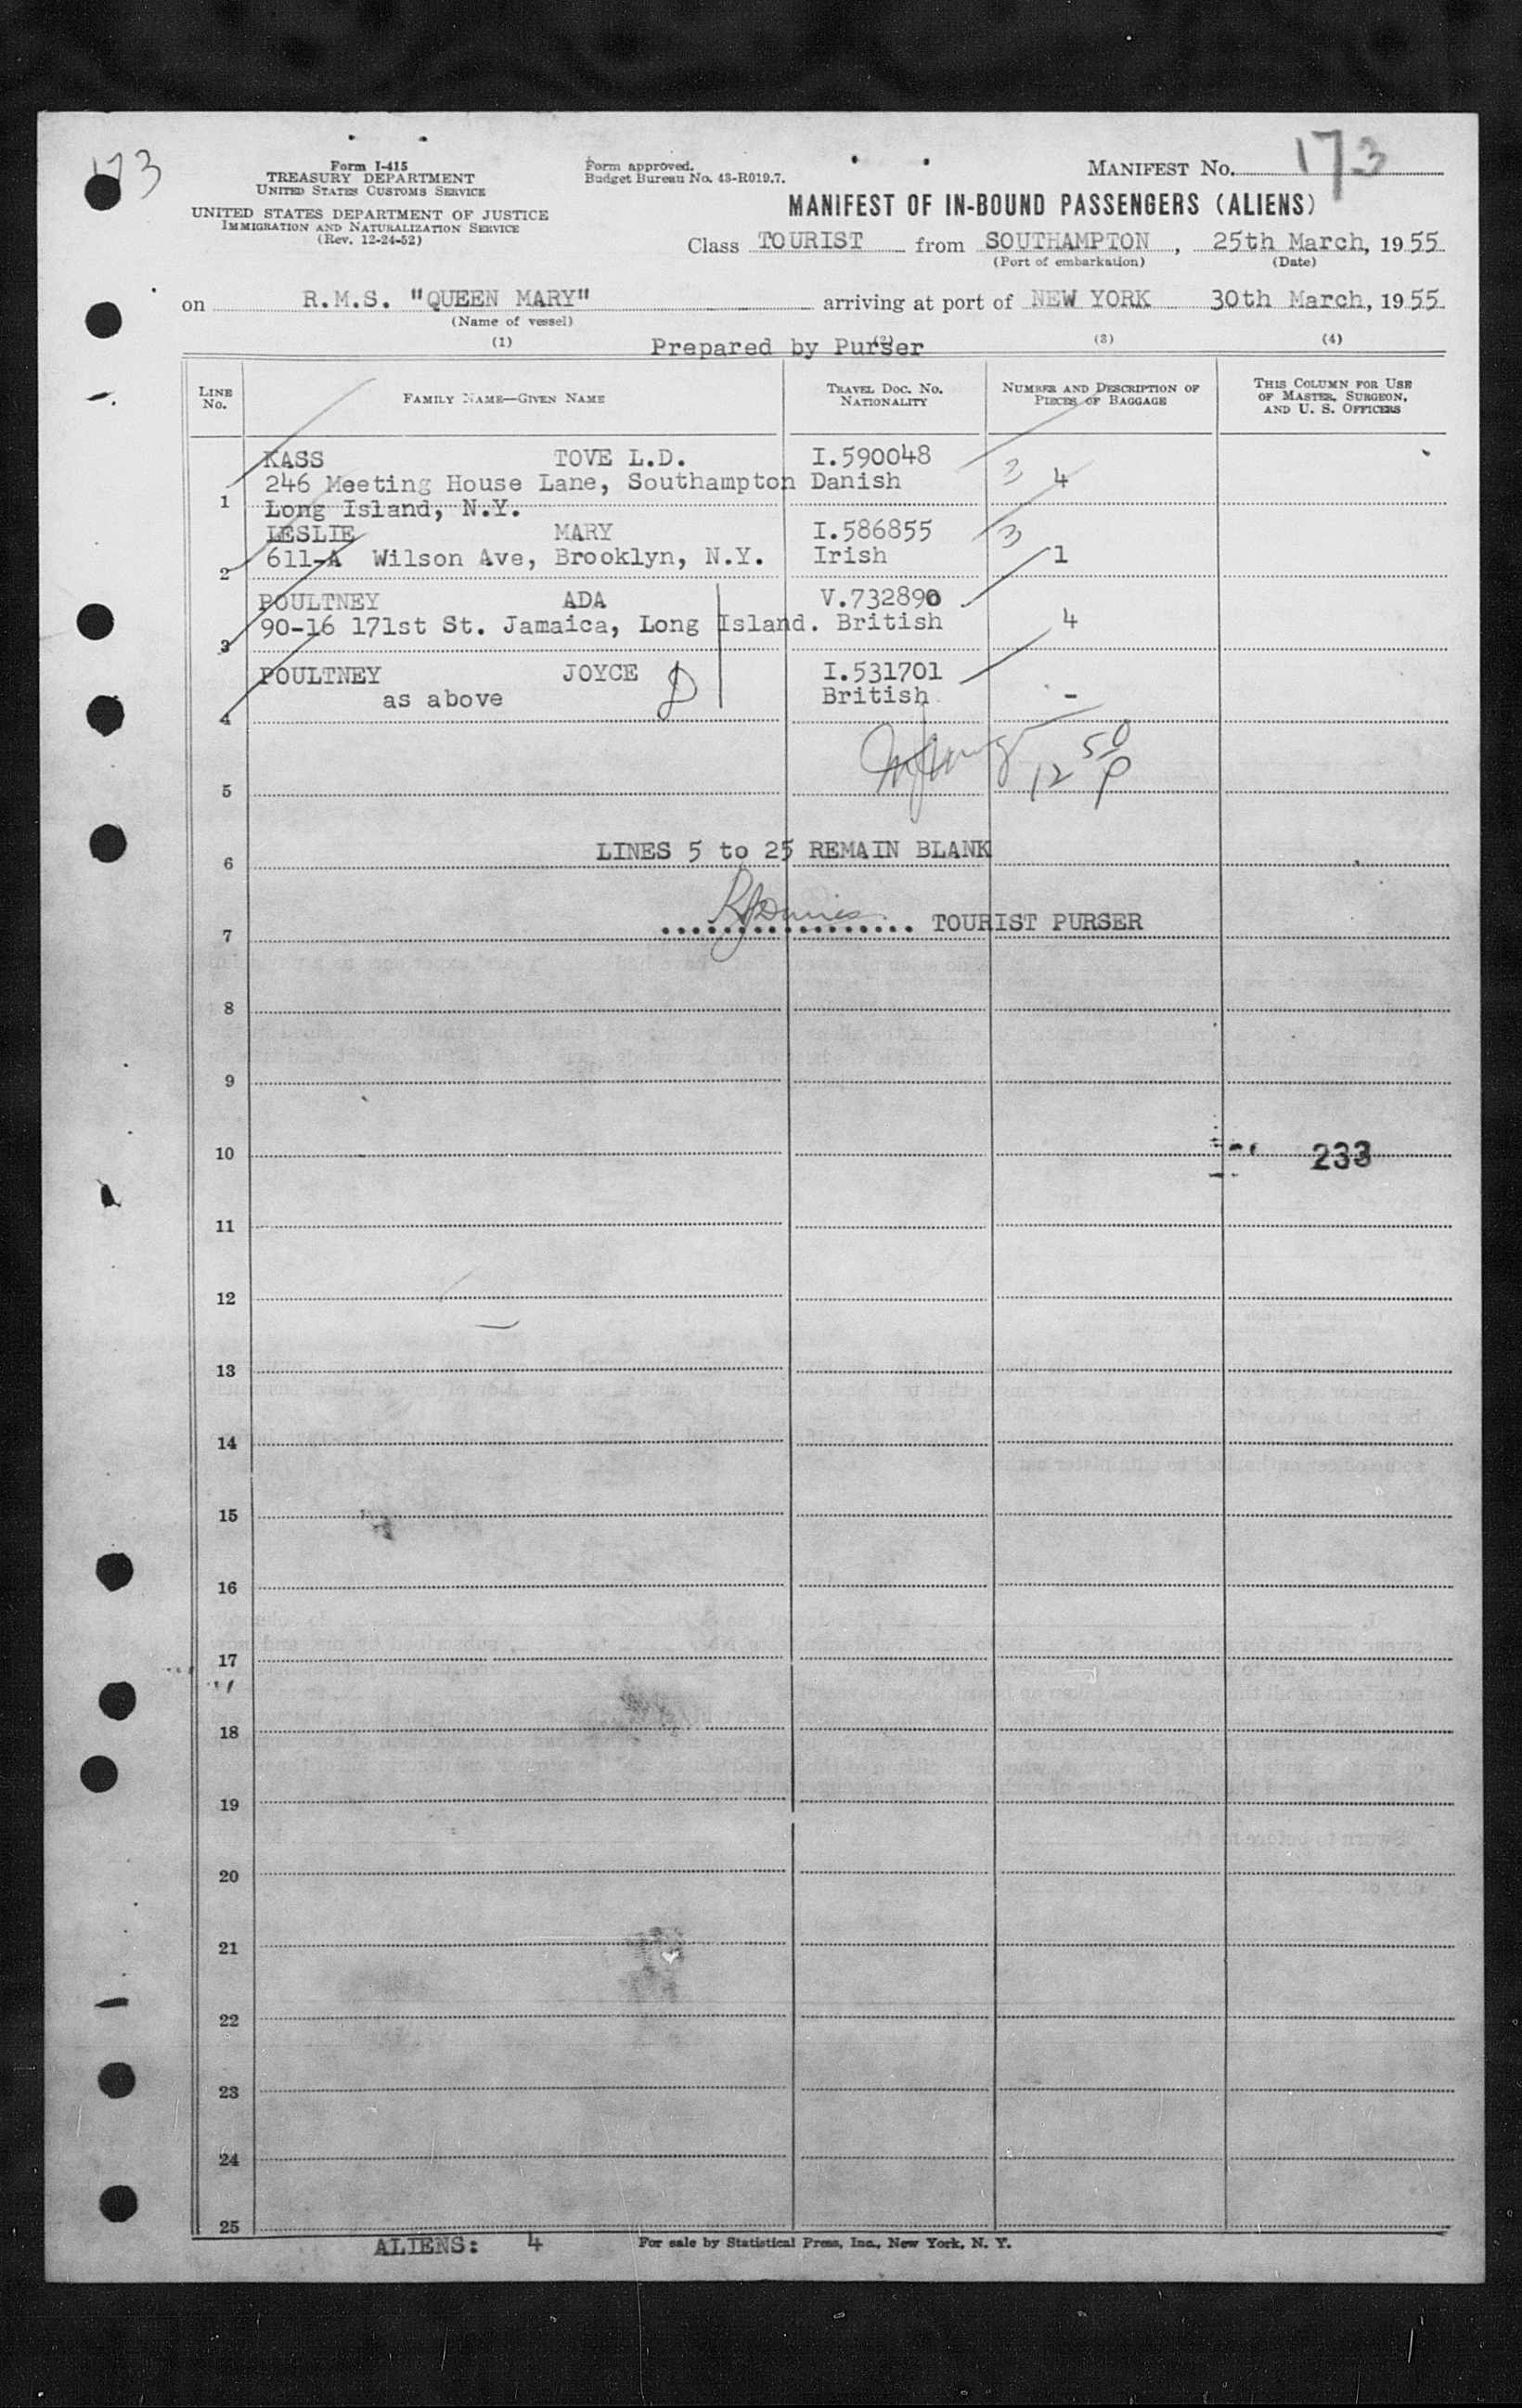 173
Form I-415
TREASURY DEPARTMENT
UNITED STATES CUSTOMS SERVICE
UNITED STATES DEPARTMENT OF JUSTICE
IMMIGRATION AND NATURALIZATION SERVICE
(Rev. 12-24-52)
Form approved.
Budget Bureau No. 43-R019.7.
MANIFEST No. 173
MANIFEST OF IN-BOUND PASSENGERS (ALIENS)
Class TOURIST from SOUTHAMPTON, 25th March, 1955
(Port of embarkation) (Date)
on R.M.S. "QUEEN MARY" arriving at port of NEW YORK 30th March, 1955
(Name of vessel)
(1) Prepared by Purser (2) (3) (4)
LINE No. FAMILY NAME—GIVEN NAME TRAVEL DOC. No. NATIONALITY NUMBER AND DESCRIPTION OF PIECES OF BAGGAGE THIS COLUMN FOR USE OF MASTER, SURGEON, AND U. S. OFFICERS
KASS TOVE L.D. I.590048
246 Meeting House Lane, Southampton Danish 3 4
1 Long Island, N.Y.
LESLIE MARY I.586855 3
611-A Wilson Ave, Brooklyn, N.Y. Irish 1
2
POULTNEY ADA V.732890
90-16 171st St. Jamaica, Long Island. British 4
3
POULTNEY JOYCE D I.531701
as above British -
4
12 50 P
5
LINES 5 to 25 REMAIN BLANK
6
TOURIST PURSER
7
8
9
10 233
11
12
13
14
15
16
17
18
19
20
21
22
23
24
25
ALIENS: 4 For sale by Statistical Press, Inc., New York, N. Y.